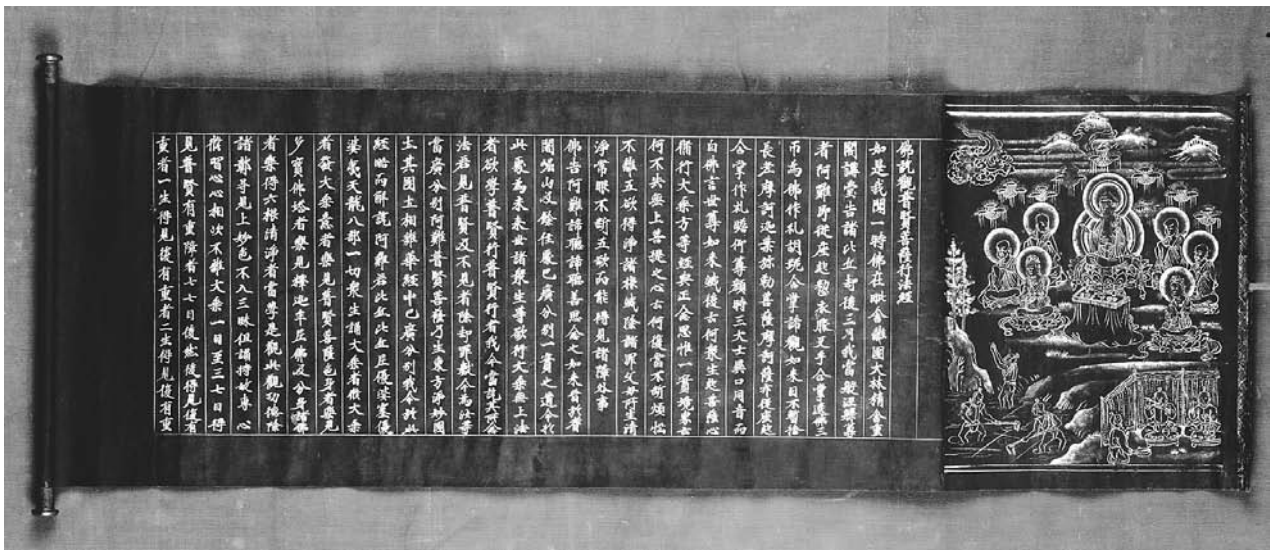 佛說觀普賢菩薩行法經
如是我聞一時佛在毗舍離國大林精舍重
閣講堂告諸比丘却後三月我當般涅槃尊
者阿難即從座起整衣服叉手合掌遶佛三
帀為佛作礼胡跪合掌諦觀如來目不暫捨
長老摩訶迦葉弥勒菩薩摩訶薩亦從座起
合掌作礼瞻仰尊顏時三大士異口同音而
白佛言世尊如來滅後云何衆生起菩薩心
脩行大乘方等經典正念思惟一實境界云
何不失無上菩提之心云何復當不斷煩惱
不離五欲得淨諸根滅除諸罪父母所生清
淨常眼不斷五欲而能得見諸障外事
佛告阿難諦聽諦聽善思念之如來昔於耆
闍崛山及餘住處已廣分別一實之道今於
此處為未來世諸衆生等欲行大乘無上法
者欲學普賢行普賢行者我今當說其所念
法若見普賢及不見者除却罪數今為汝等
當廣分別阿難普賢菩薩乃生東方淨妙國
土其國土相雜華經中已廣分別我今於此
經略而解說阿難若比丘比丘尼優婆塞優
婆夷天龍八部一切衆生誦大乘者脩大乘
者發大乘意者樂見普賢菩薩色身者樂見
多寶佛塔者樂見釋迦牟尼佛及分身諸佛
者樂得六根清淨者當學是觀此觀功德除
諸鄣㝵見上妙色不入三昧但誦持故專心
脩習心心相次不離大乘一日至三七日得
見普賢有重障者七七日後然後得見復有
重者一生得見復有重者二生得見復有重